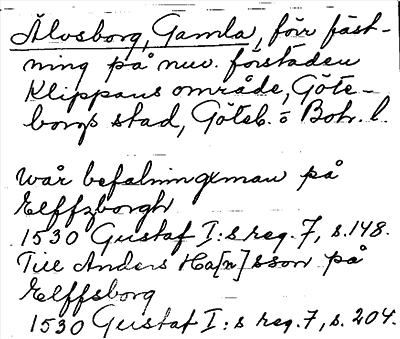 Älvsborg, Gamla, förr fäst-
ning på nuv. förstaden
Klippans område, Göte-
borgs stad, Göteb. o Boh. l.
wår befalningxman på
Elffzborgh
1530 Gustaf I:s reg. 7, s. 148.
Till Anders Ha[n]sson på
Elffsborg
1530 Gustaf I:s reg. 7, s. 204.